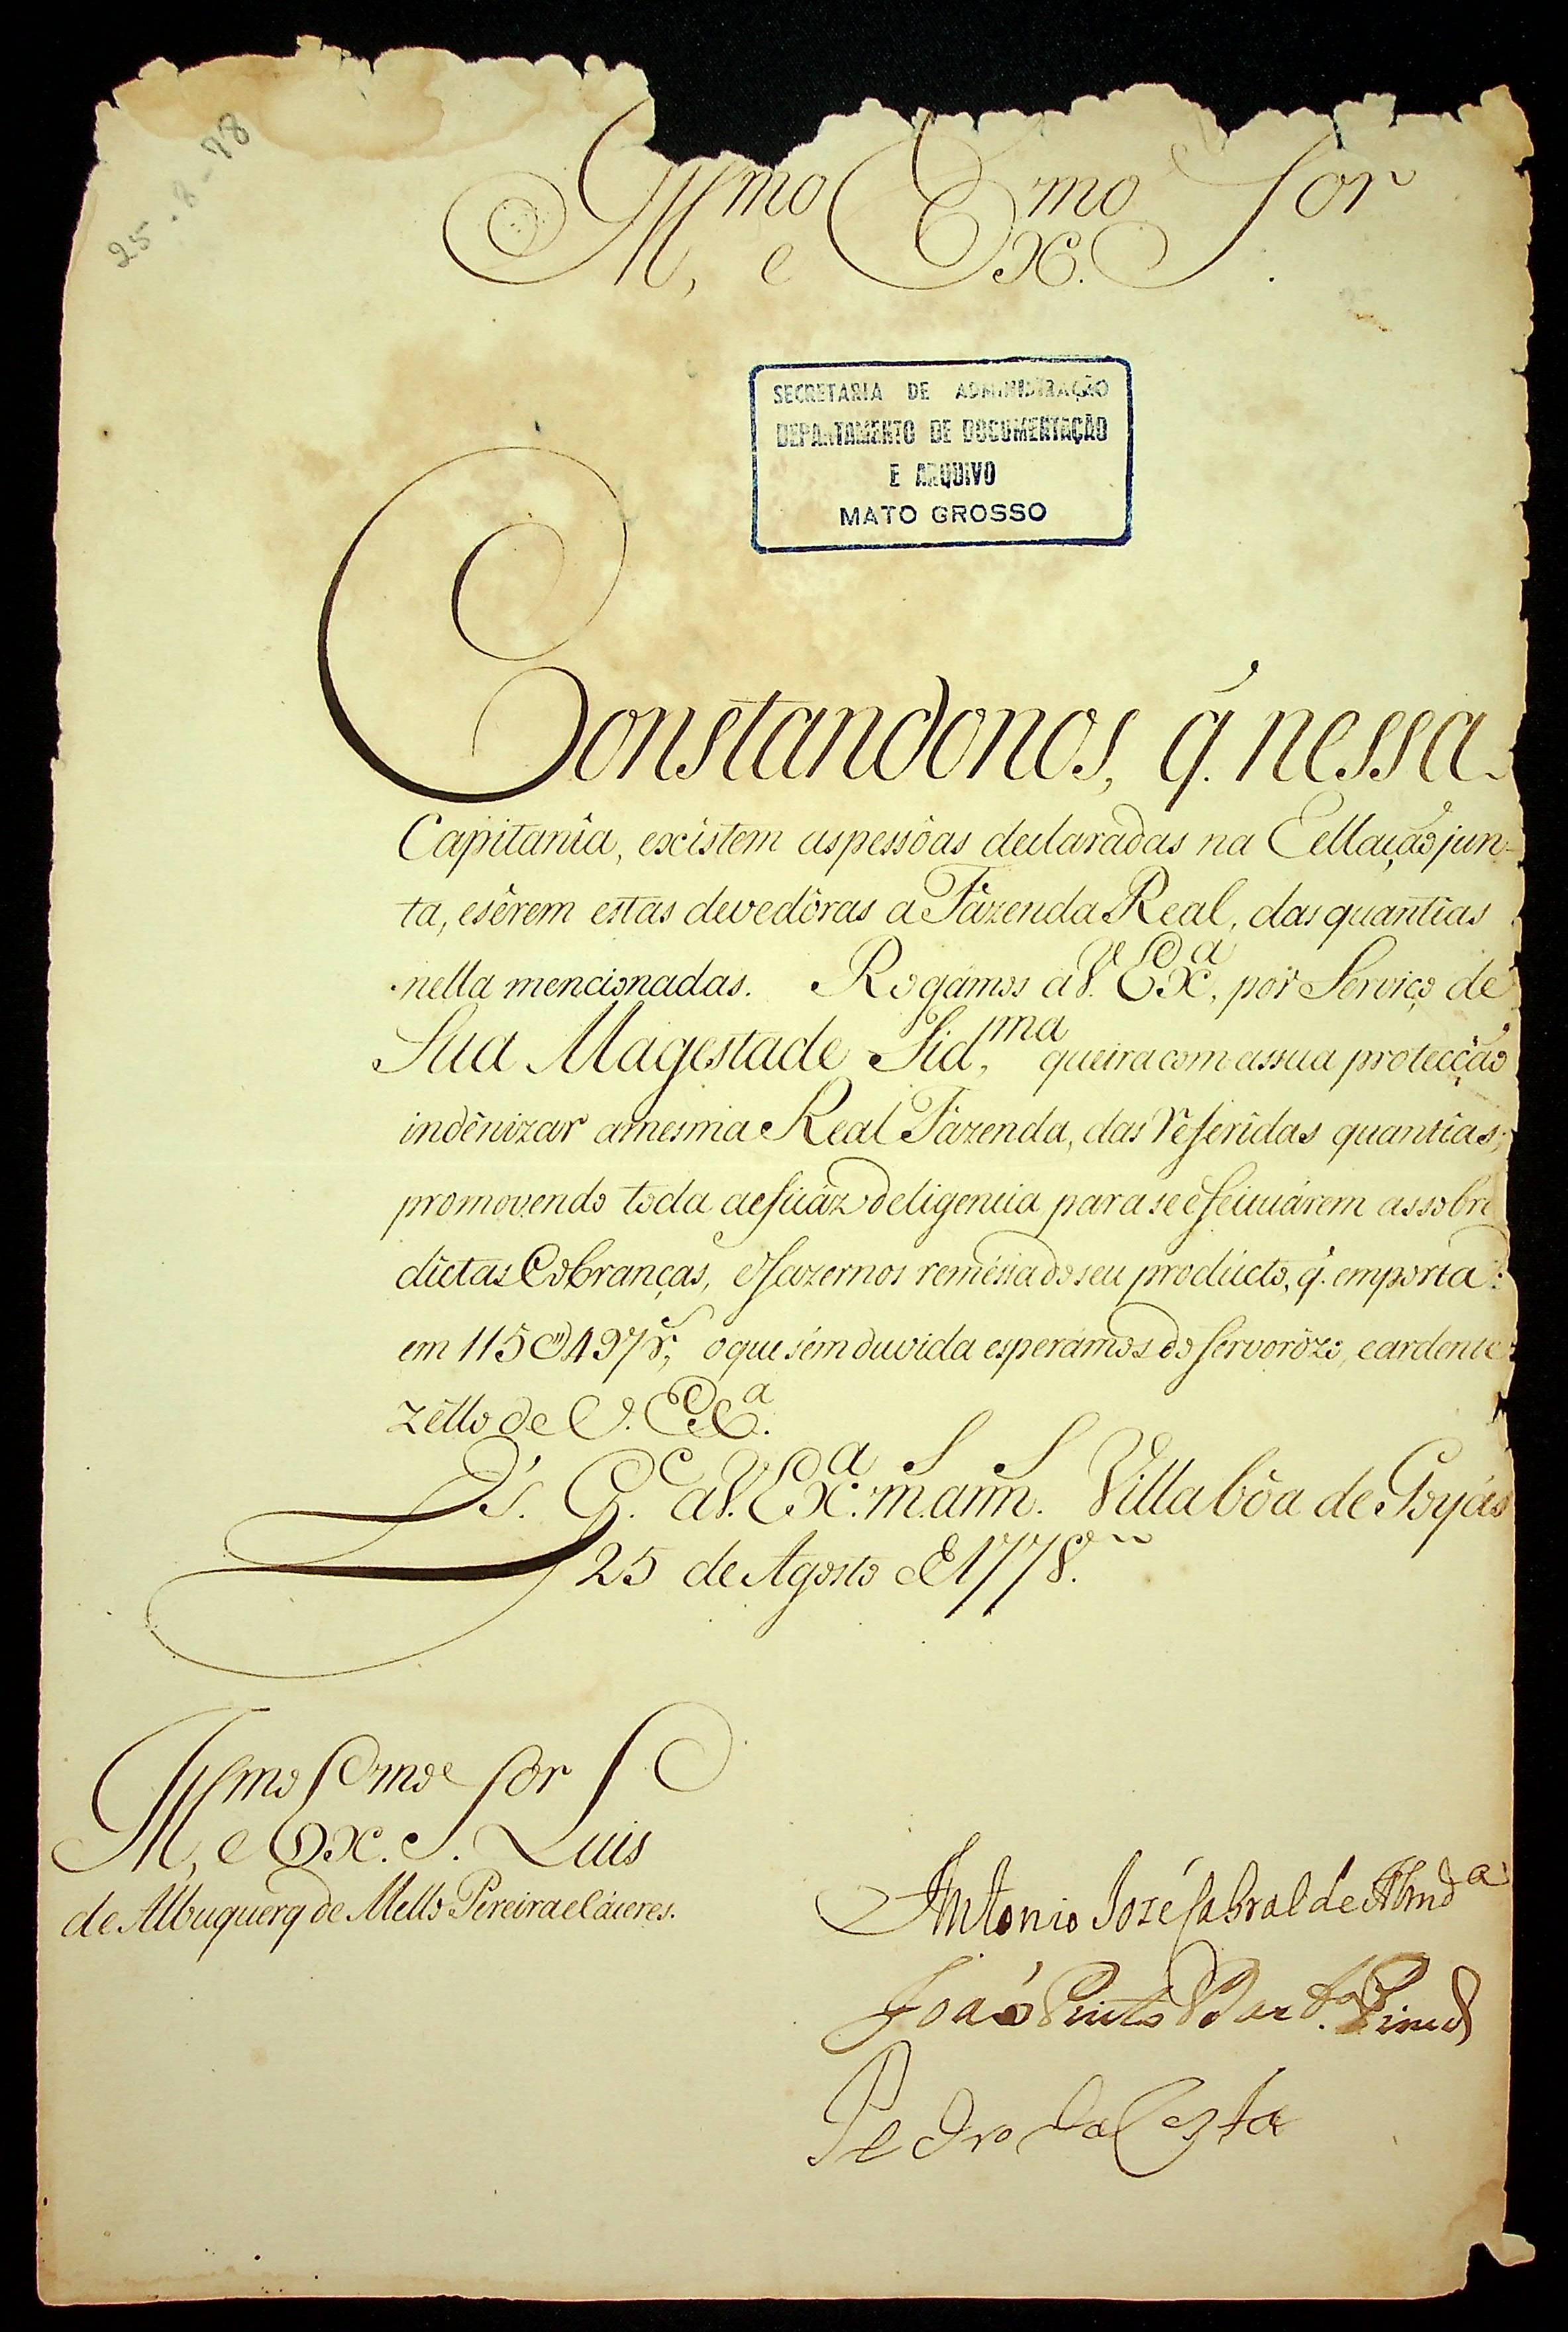 25-8-78
Ill.mo e Ex.mo Sor.
SECRETARIA DE ADMINISTRAÇÃO
DEPARTAMENTO DE DOCUMENTAÇÃO
E ARQUIVO
MATO GROSSO
Constandonos, q̃. nessa
Capitanîa, existem aspessôas declaradas na Rellação jun-
ta, esêrem estas devedôras a Fâzenda Real, das quantîas
nella mencionadas. Rogâmos a V. Ex.a, por Serviço de
Sua Magestade Fid.ma, queira com assua protecção
indênizar amesma Real Fâzenda, das referîdas quantîas;
promovendo toda aeficáz deligencia para se efeituárem as sobre
dîctas Cobranças, e fazernos reméssa do seu prodúcto, q̃. emporta:
em 115@497r.s, oque sem duvida esperâmos do fervorôzo, eardente
zêllo de V. Ex.a.
D.s G.e a V. Ex.a m.s ann.s Villa bôa de Goyás
25 de Agosto de 1778.
Ill.mo e Ex.mo Sor. Luis
de Albuquerq̃ de Mello Pereira e Cáceres.
Antonio José Cabral de Almd.a
João Pinto Barb.a Pim.el
Pedro da Costa